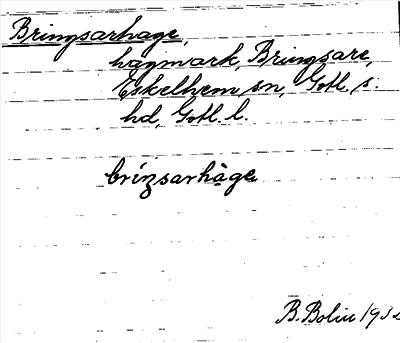 Bringsarhage,
hagmark, Bringsare,
Eskelhem sn, Gotl. s.
hd, Gotl. l.
briŋsarhàge
B. Bolin